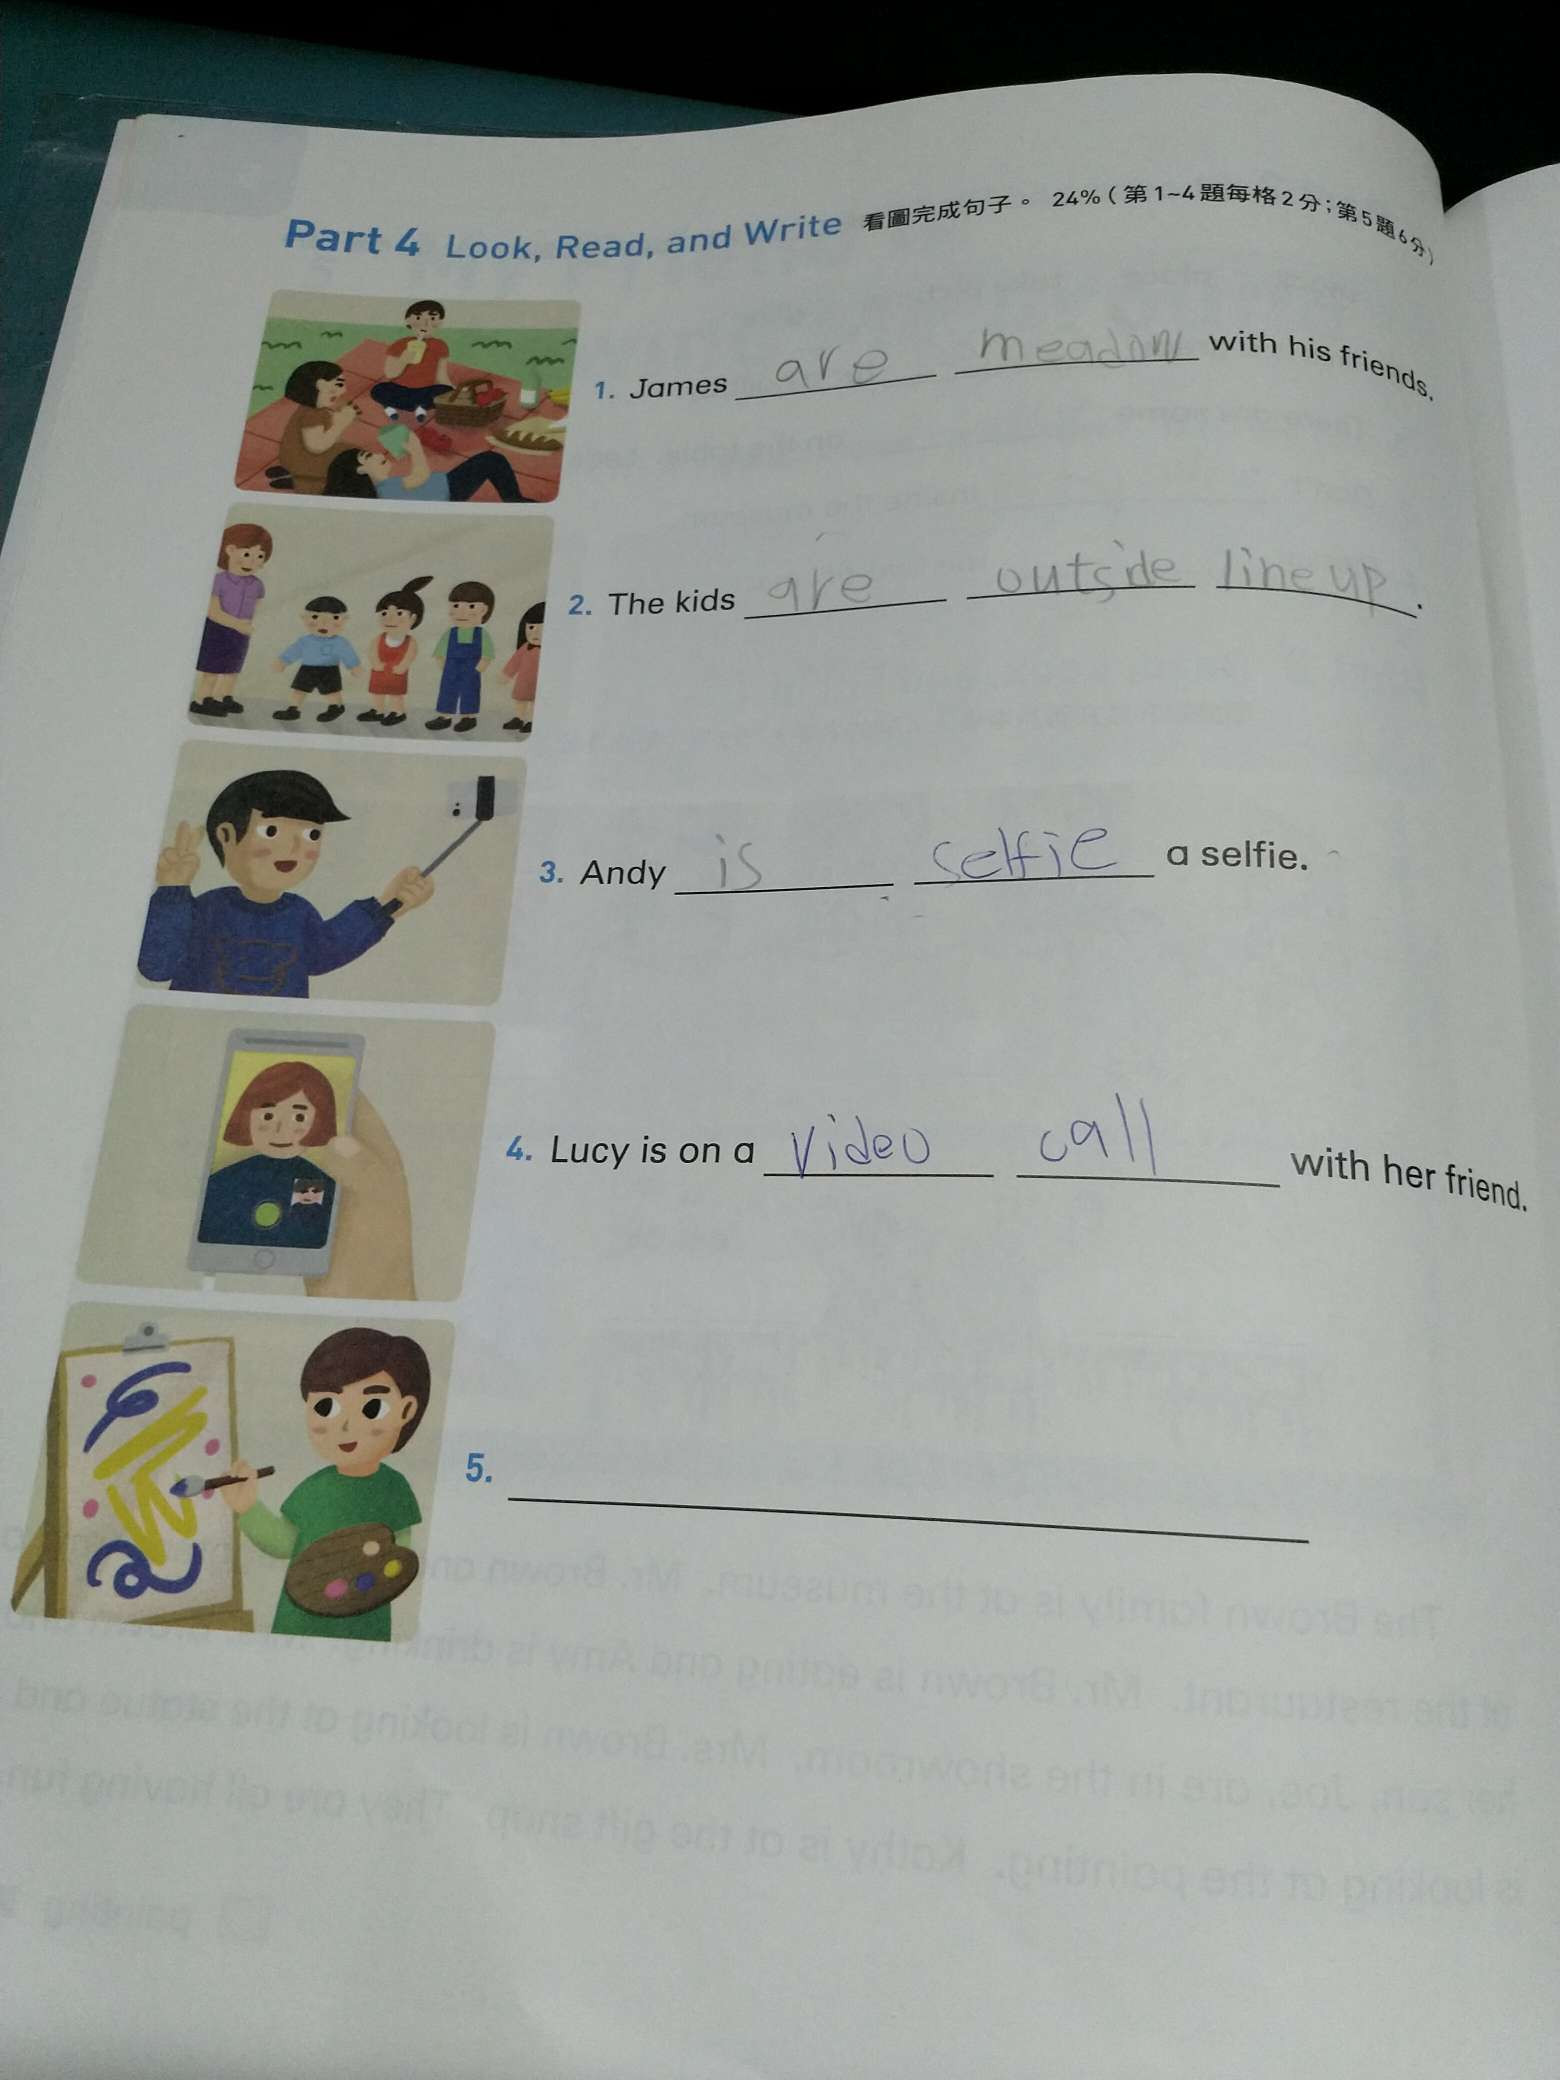 Part 4 Look, Read, and Write 看圖完成句子。 24%(第1~4題每格2分;第5題6分)
1. James are meadow with his friends.
2. The kids are outside line up.
3. Andy is selfie a selfie.
4. Lucy is on a video call with her friend.
5.